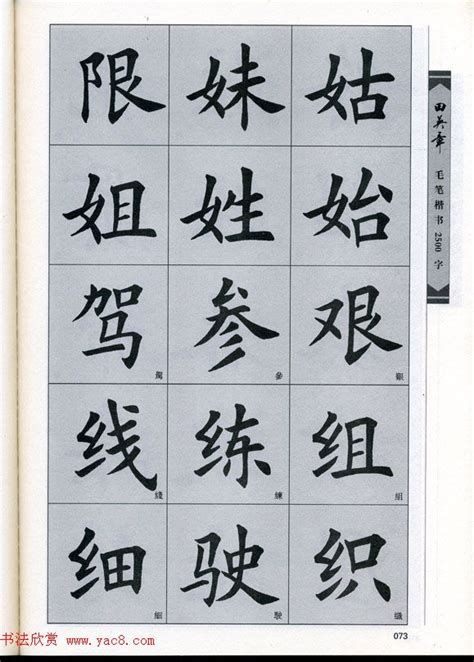 限 妹 姑
姐 姓 始
驾 参 艰
駕 參 艱
线 练 组
綫 練 組
细 驶 织
細 駛 織
田英章
毛笔楷书2500字
书法欣赏 www.yac8.com
073